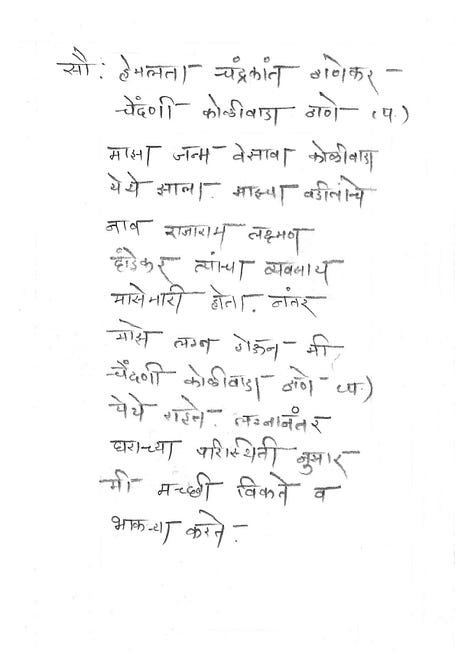 सौ: हेमलता चंद्रकांत ठाणेकर -
चेंदणी कोळीवाडा ठाणे (प.)
माझा जन्म वेसावा कोळीवाडा
येथे झाला. माझ्या वडीलांचे
नाव राजाराम लक्ष्मण
हांडेकर त्यांचा व्यवसाय
मासेमारी होता. नंतर
माझे लग्न होऊन मी
चेंदणी कोळीवाडा ठाणे (प.)
येथे राहते. लग्नानंतर
घराच्या परिस्थिती नुसार
मी मच्छी विकते व
भाकऱ्या करते -